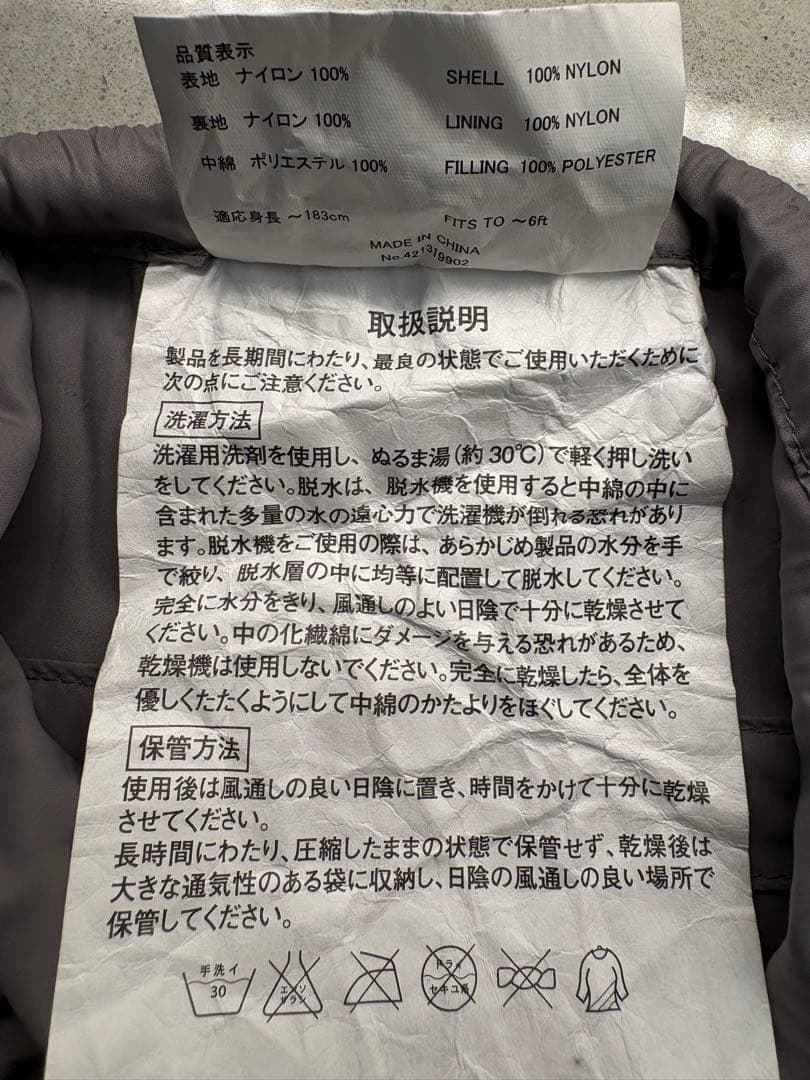 品質表示
表地 ナイロン 100% SHELL 100% NYLON
裏地 ナイロン 100% LINING 100% NYLON
中綿 ポリエステル 100% FILLING 100% POLYESTER
適応身長 ～183cm FITS TO ～6ft
MADE IN CHINA
No.421319902
取扱説明
製品を長期間にわたり、最良の状態でご使用いただくために
次の点にご注意ください。
洗濯方法
洗濯用洗剤を使用し、ぬるま湯(約30℃)で軽く押し洗い
をしてください。脱水は、脱水機を使用すると中綿の中に
含まれた多量の水の遠心力で洗濯機が倒れる恐れがあり
ます。脱水機をご使用の際は、あらかじめ製品の水分を手
で絞り、脱水層の中に均等に配置して脱水してください。
完全に水分をきり、風通しのよい日陰で十分に乾燥させて
ください。中の化繊綿にダメージを与える恐れがあるため、
乾燥機は使用しないでください。完全に乾燥したら、全体を
優しくたたくようにして中綿のかたよりをほぐしてください。
保管方法
使用後は風通しの良い日陰に置き、時間をかけて十分に乾燥
させてください。
長時間にわたり、圧縮したままの状態で保管せず、乾燥後は
大きな通気性のある袋に収納し、日陰の風通しの良い場所で
保管してください。
手洗イ
30
エンソ
サラシ
ドライ
セキユ系